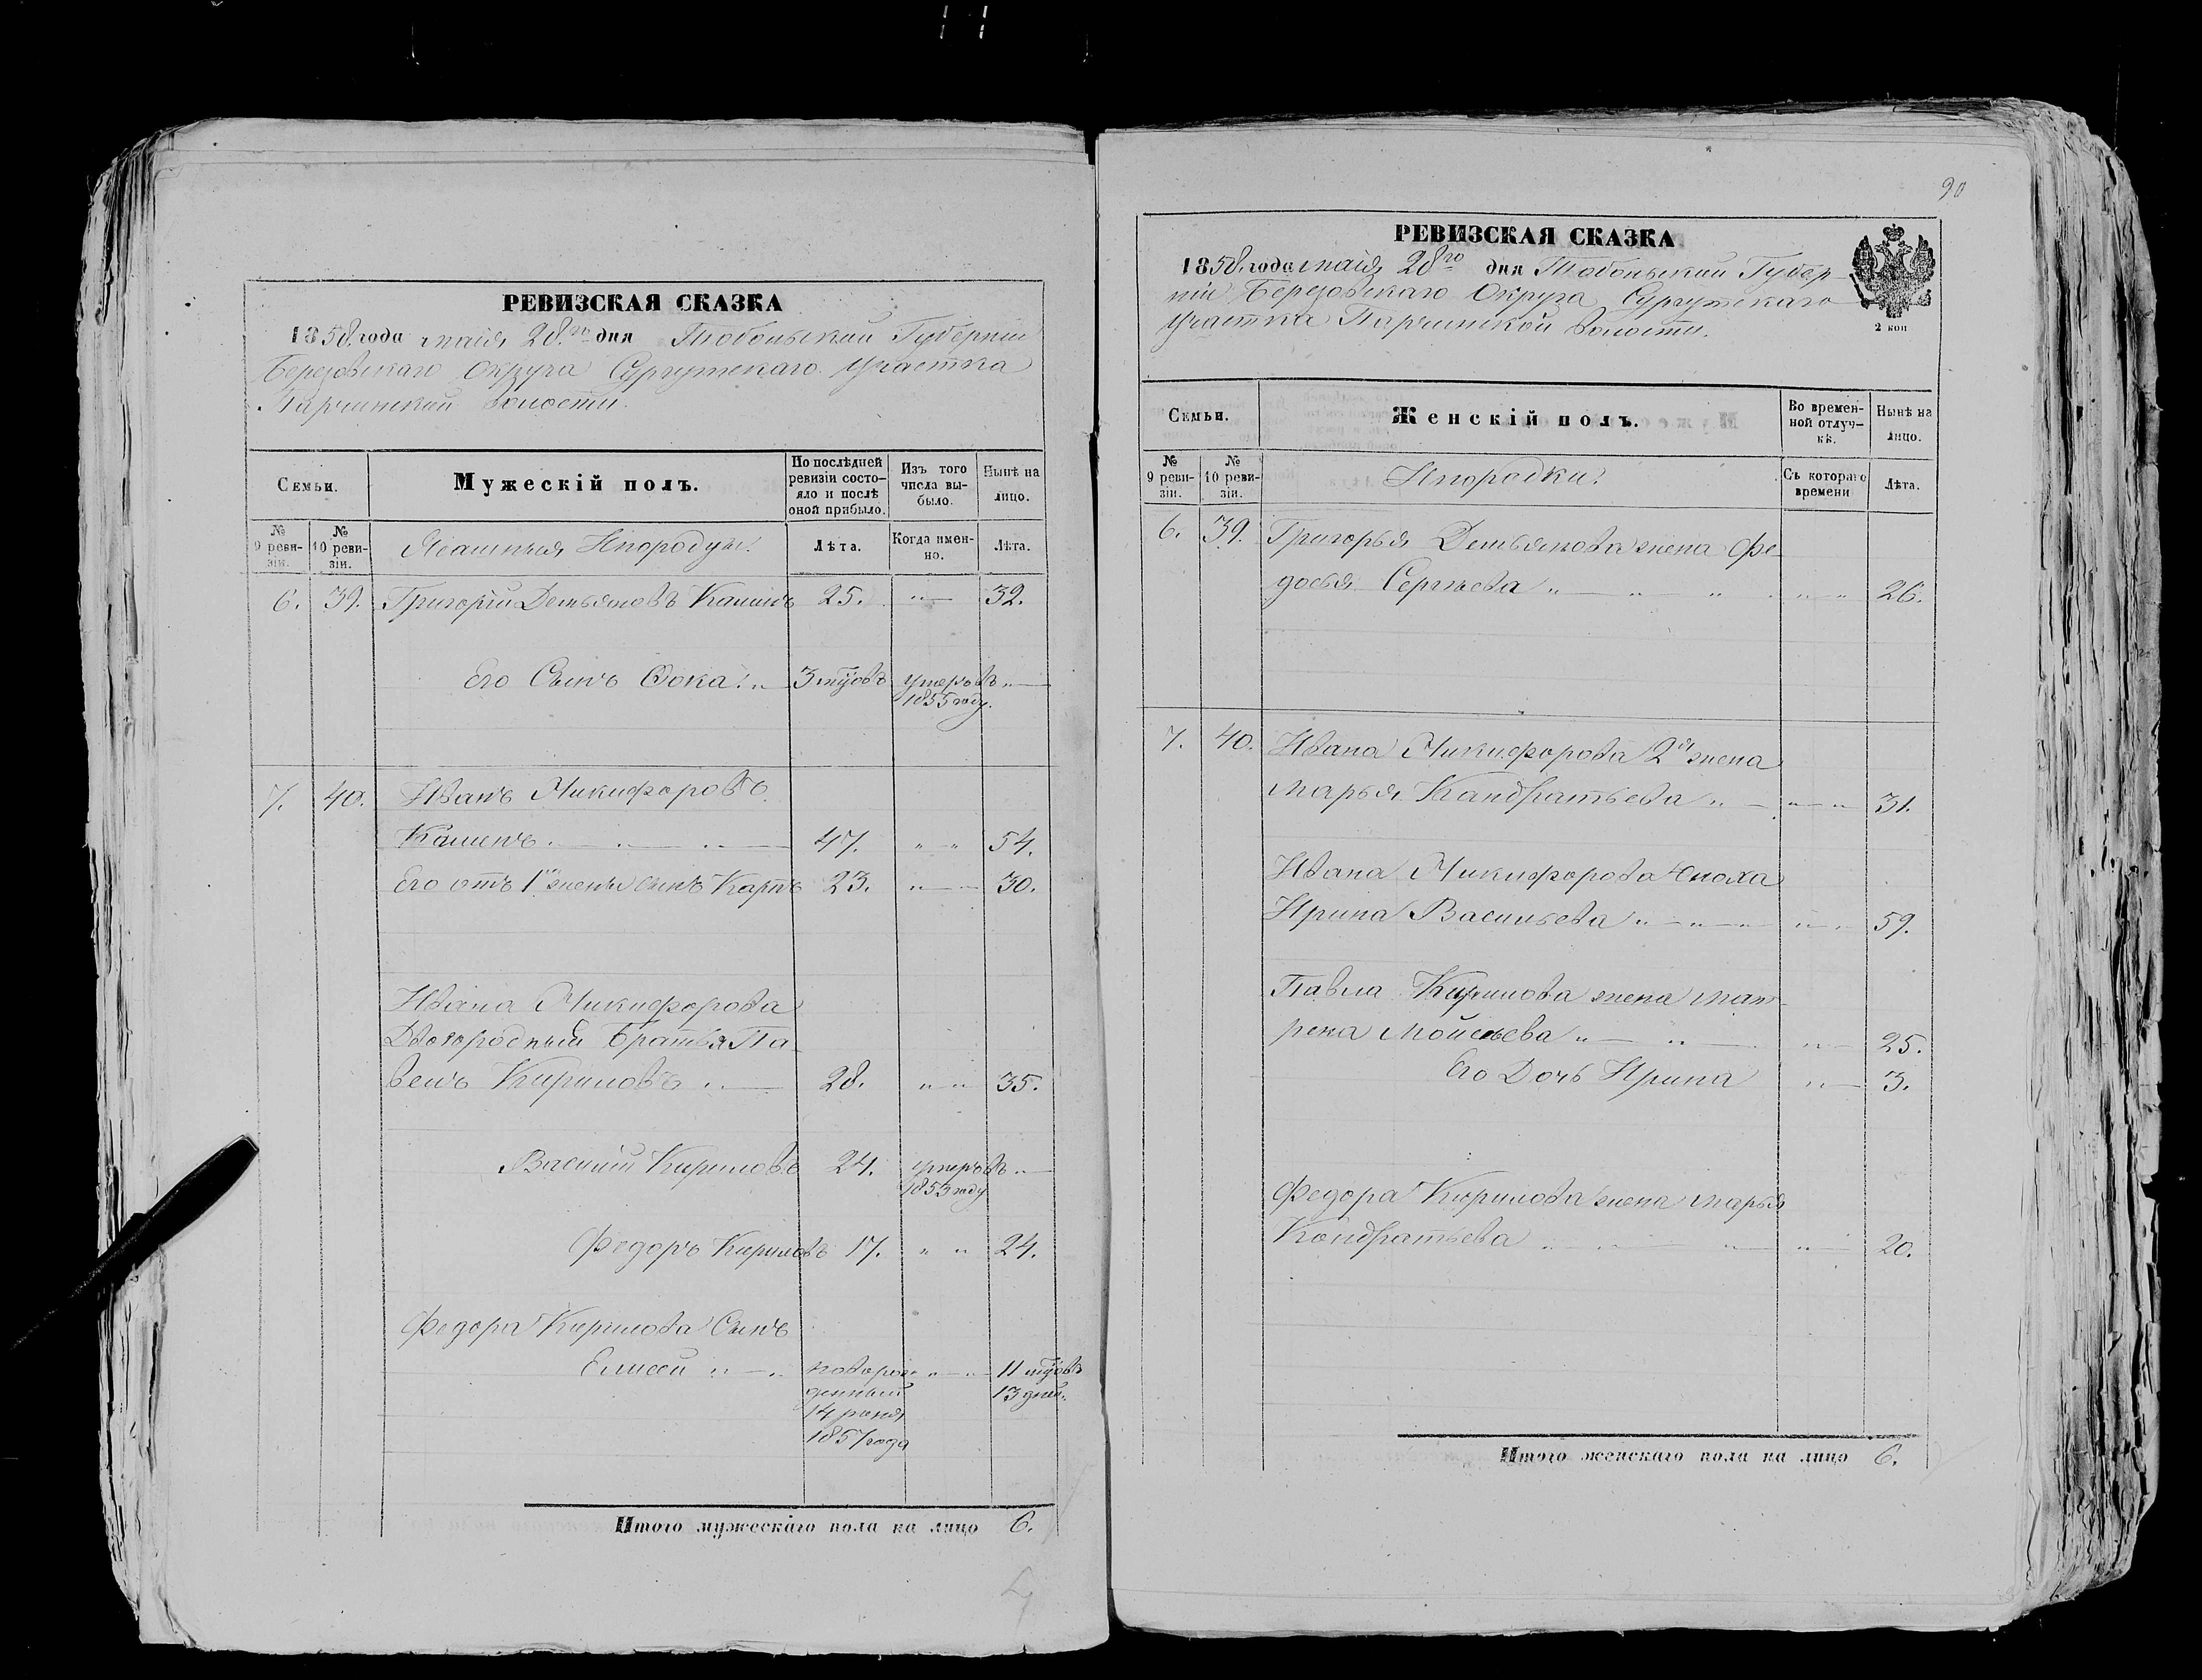 90
РЕВИЗСКАЯ СКАЗКА
1858. года маія 28.го дня Тобольской Губерніи
Березовскаго Округа Сургутскаго участка
волости.
Семьи.
Мужескій полъ.
По послѣдней ревизіи состояло и послѣ оной прибыло.
Изъ того числа выбыло.
Нынѣ на лицо.
№ 9 ревизіи.
№ 10 ревизіи.
Ясашныя Инородцы.
Лѣта.
Когда именно.
Лѣта.
6. 39. Григорій Демьяновъ 25. "— 32.
Его Сынъ Фока. "— 3 мцовъ умеръ въ "—
1855 году.
7. 40. Иванъ Никифоровъ
47. " " 54.
Его отъ 1й жены сынъ Карпъ 23. "— 30.
Ивана Никифорова
Двоюродный Братья Па-
велъ Кириловъ "— 28. " " 35.
Василій Кириловъ 24. умеръ въ "—
1853 году
Федоръ Кириловъ 17. " " 24.
Федора Кирилова Сынъ
Елисей "— новорож- "— " 11 мцовъ
денный 13 дней.
14
1857 года
Итого мужескаго пола на лицо 6.
РЕВИЗСКАЯ СКАЗКА
1858. года маія 28го дня Тобольской Губер-
ніи Березовскаго Округа Сургутскаго
участка волости.
2 коп
Семьи.
Женскій полъ.
Во временной отлучкѣ.
Нынѣ на лицо.
№ 9 ревизіи.
№ 10 ревизіи.
Инородки.
Съ котораго времени
Лѣта.
6. 39. Григорья Демьянова жена Фе-
досья Сергѣева "— " " " " 26.
7. 40. Ивана Никифорова 2я жена
Марья Кандратьева "— "—" 31.
Ивана Никифорова сноха
Ирина Васильева "—"—" "—" 59.
Павла Кирилова жена Мат-
рена Моисеева "— " "— 25.
Его Дочь Ирина "— 3.
Федора Кирилова жена Марья
Кондратьева " " "— 20.
Итого женскаго пола на лицо 6.